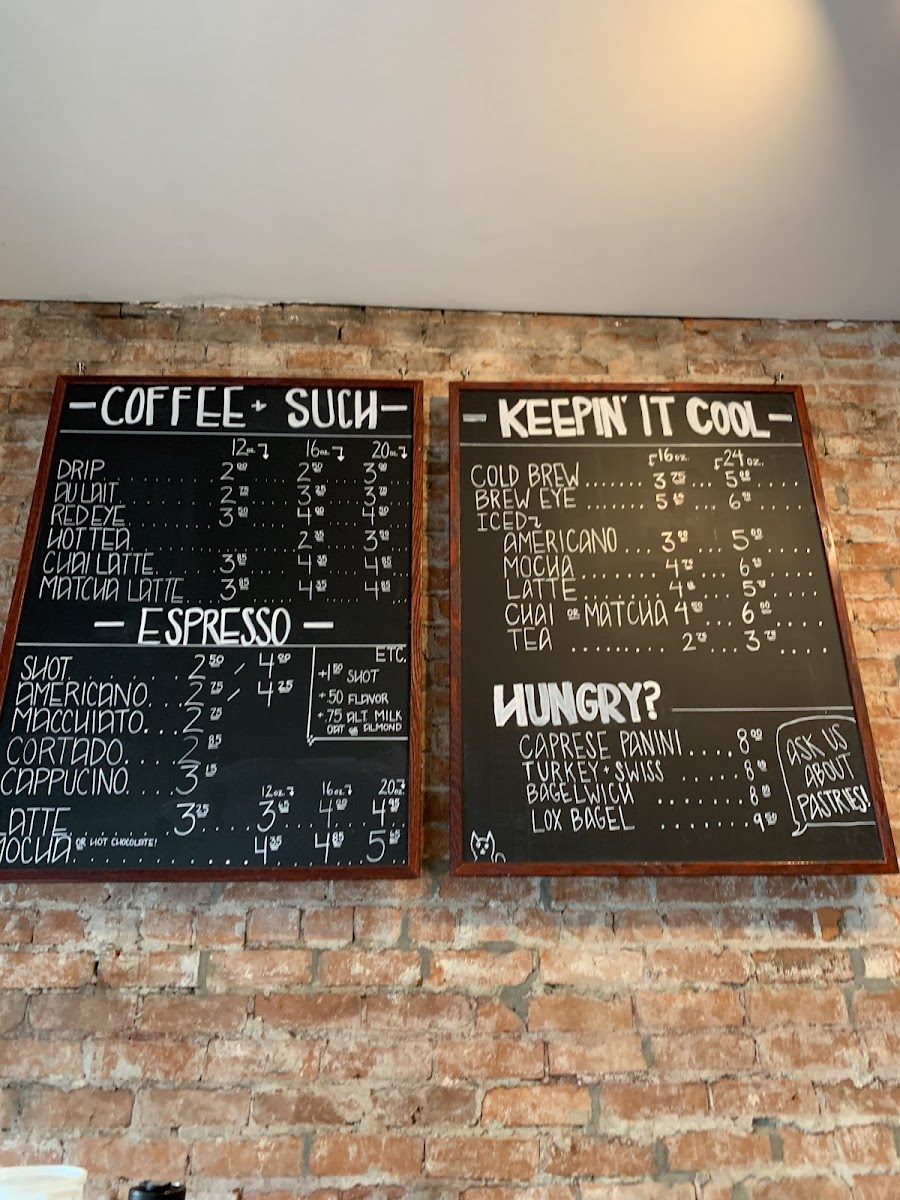 COFFEE + SUCH
12oz 16oz 20oz
DRIP 2 2 3
AU LAIT 2 75 3 25 3 75
RED EYE 3 50 4 4 50
HOT TEA 2 3
CHAI LATTE 3 85 4 35 4 85
MATCHA LATTE 3 85 4 35 4 85
ESPRESSO
SHOT 2 50 / 4
AMERICANO 2 75 / 4 25
MACCHIATO 2 75
CORTADO 2 85
CAPPUCINO 3 15
ETC.
+1 50 SHOT
+.50 FLAVOR
+.75 ALT. MILK
OAT OR ALMOND
12oz 16oz 20oz
LATTE 3 25 3 4 4
MOCHA OR HOT CHOCOLATE! 4 35 4 85 5
- KEEPIN' IT COOL -
16oz. 24oz.
COLD BREW 3 75 5
BREW EYE 5 6
ICED
AMERICANO 3 5
MOCHA 4 6
LATTE 4 5
CHAI OR MATCHA 4 6
TEA 2 3
HUNGRY?
CAPRESE PANINI 8
TURKEY + SWISS 8
BAGELWICH 8
LOX BAGEL 9
ASK US
ABOUT
PASTRIES!